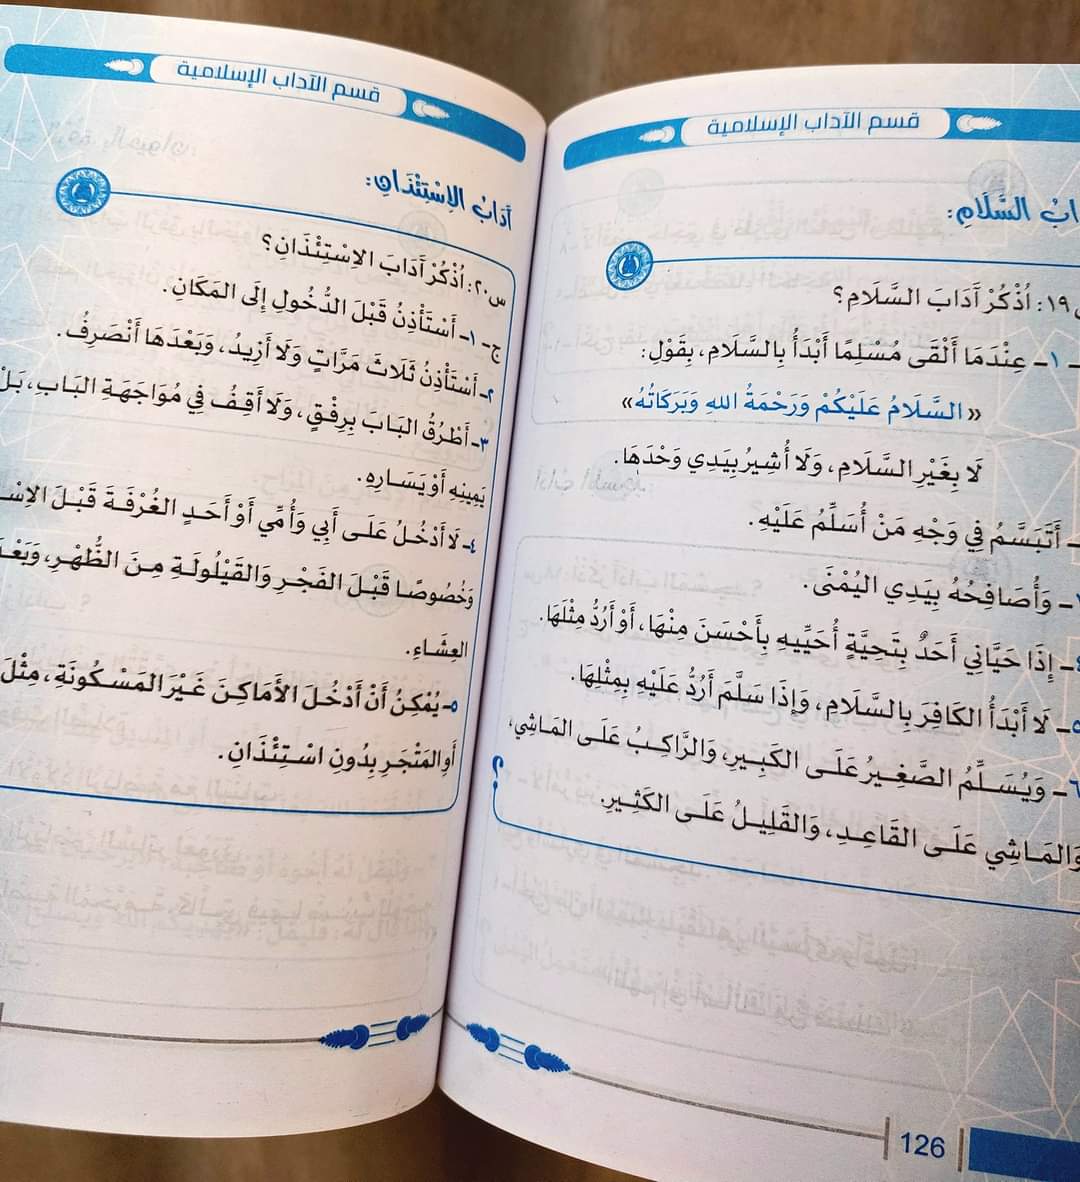 قسم الآداب الإسلامية
السَّلَامِ:
١٩: اُذْكُرْ آدَابَ السَّلَامِ؟
١- عِنْدَمَا أَلْقَى مُسْلِمًا أَبْدَأُ بِالسَّلَامِ، بِقَوْلِ:
« السَّلَامُ عَلَيْكُمْ وَرَحْمَةُ اللهِ وَبَرَكَاتُهُ»
لَا بِغَيْرِ السَّلَامِ، وَلَا أُشِيرُ بِيَدِي وَحْدَهَا.
- أَتَبَسَّمُ فِي وَجْهِ مَنْ أُسَلِّمُ عَلَيْهِ.
- وَأُصَافِحُهُ بِيَدِي الْيُمْنَى.
- إِذَا حَيَّانِي أَحَدٌ بِتَحِيَّةٍ أُحَيِّيهِ بِأَحْسَنَ مِنْهَا، أَوْ أَرُدُّ مِثْلَهَا.
٥- لَا أَبْدَأُ الكَافِرَ بِالسَّلَامِ، وَإِذَا سَلَّمَ أَرُدُّ عَلَيْهِ بِمِثْلِهَا.
٦- وَيُسَلِّمُ الصَّغِيرُ عَلَى الكَبِيرِ، وَالرَّاكِبُ عَلَى المَاشِي،
وَالمَاشِي عَلَى القَاعِدِ، وَالقَلِيلُ عَلَى الكَثِيرِ.
126
قسم الآداب الإسلامية
آدَابُ الِاسْتِئْذَانِ:
س٢٠: اُذْكُرْ آدَابَ الِاسْتِئْذَانِ؟
ج- ١- أَسْتَأْذِنُ قَبْلَ الدُّخُولِ إِلَى المَكَانِ.
٢- أَسْتَأْذِنُ ثَلَاثَ مَرَّاتٍ وَلَا أَزِيدُ، وَبَعْدَهَا أَنْصَرِفُ.
٣- أَطْرُقُ البَابَ بِرِفْقٍ، وَلَا أَقِفُ فِي مُوَاجَهَةِ البَابِ، بَلْ
يَمِينِهِ أَوْ يَسَارِهِ.
٤- لَا أَدْخُلُ عَلَى أَبِي وَأُمِّي أَوْ أَحَدٍ الغُرْفَةَ قَبْلَ
وَخُصُوصًا قَبْلَ الفَجْرِ وَالقَيْلُولَةِ مِنَ الظُّهْرِ،
العِشَاءِ.
٥- يُمْكِنُ أَنْ أَدْخُلَ الأَمَاكِنَ غَيْرَ المَسْكُونَةِ، مِثْلَ
أَوِ المَتْجَرِ بِدُونِ اسْتِئْذَانٍ.